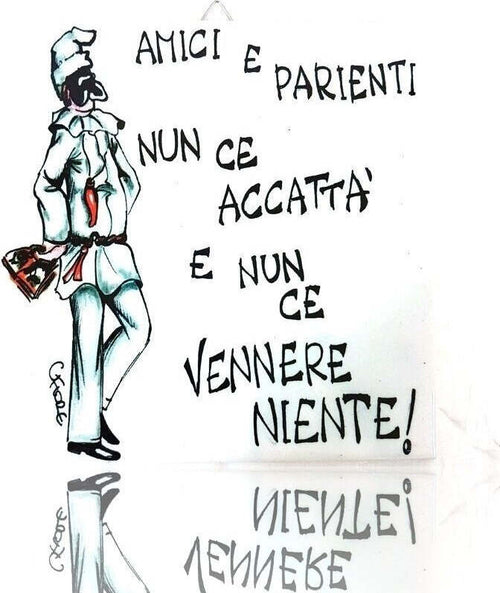 AMICI E
PARIENTI
NUN CE
ACCATTA'
E NUN
CE
VENNERE
NIENTE!